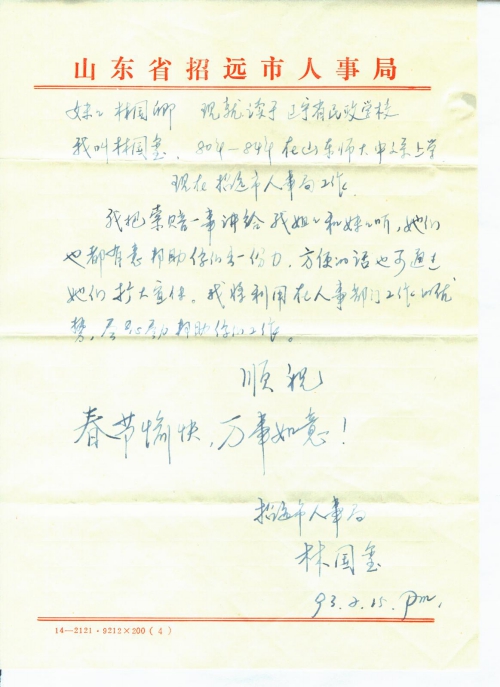 山东省招远市人事局
妹妹林国卿 现就读于辽宁省民政学校
我叫林国玺、80年—84年在山东师大中文系上学
现在招远市人事局工作。
我把索赔一事讲给我姐姐和妹妹听，她们
也都有意帮助你们出一份力，方便的话也可通过
她们扩大宣传。我将利用在人事部门工作的优
势，尽心尽力帮助你们工作。
顺祝
春节愉快，万事如意！
招远市人事局
林国玺
93.2.15. pm.
14—2121·9212×200（4）